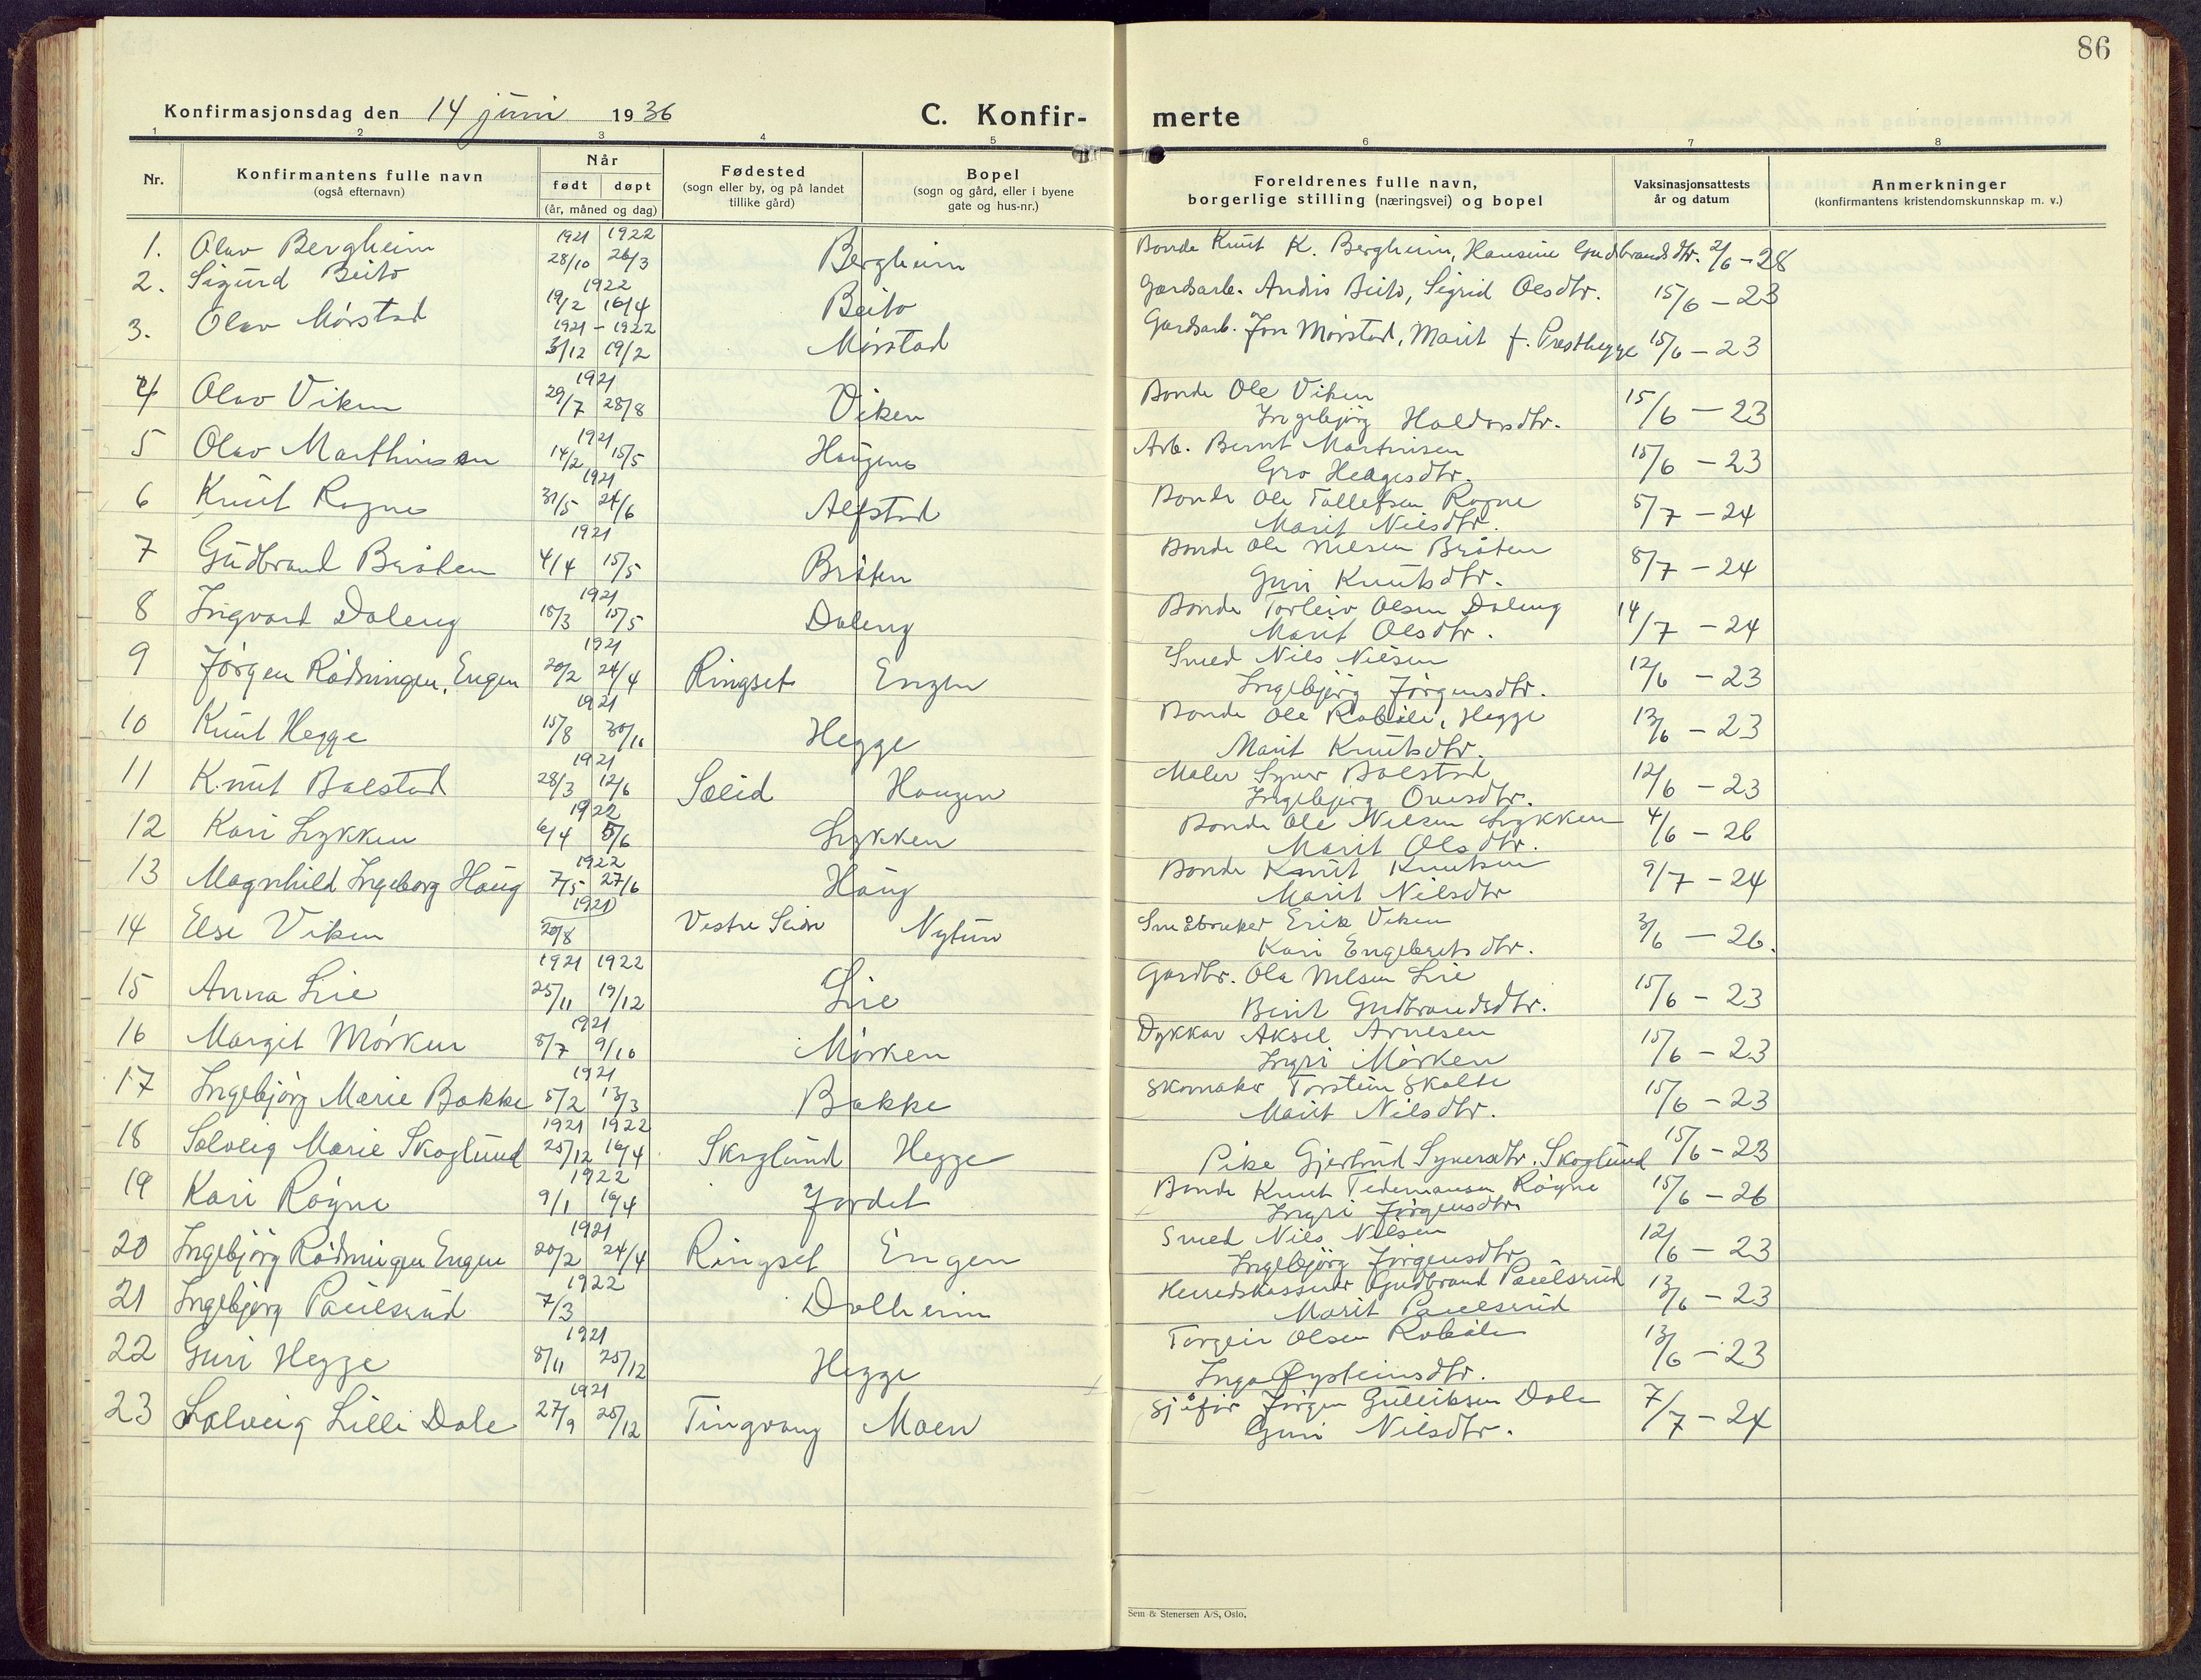 86
Konfirmasjonsdag den 14 juni 1936
C. Konfir- merte
1 2 3 4 5 6 7 8
Nr. Konfirmantens fulle navn (også efternavn) Når født døpt (år, måned og dag) Fødested (sogn eller by, og på landet tillike gård) Bopel (sogn og gård, eller i byene gate og hus-nr.) Foreldrenes fulle navn, borgerlige stilling (næringsvei) og bopel Vaksinasjonsattests år og datum Anmerkninger (konfirmantens kristendomskunnskap m. v.)
1. Olav Bergheim 1921 28/10 1922 26/3 Bergheim Bonde Knut K. Bergheim, Hansine Gudbrandsdtr. 2/6 - 28
2. Sigurd Beito 1922 19/2 16/4 Beito Gardsarb. Andris Beito, Sigrid Olsdtr. 15/6 - 23
3. Olav Mørstad 1921 - 1922 3/12 19/2 Mørstad Gardsarb. Jon Mørstad, Marit f. Presthegge 15/6 - 23
4 Olav Viken 1921 29/7 28/8 Viken Bonde Ole Viken
Ingebjørg Haldorsdtr. 15/6 - 23
5 Olav Marthinsen 1921 14/2 15/5 Haugen Arb. Bernt Martinsen
Gro Helgesdtr. 15/6 - 23
6 Knut Rogne 1921 31/5 24/6 Alfstad Bonde Ole Tollefsen Rogne
Marit Nilsdtr. 5/7 - 24
7 Gudbrand Bråten 1921 4/4 15/5 Bråten Bonde Ole Nilsen Bråten
Guri Knutsdtr. 8/7 - 24
8 Ingvard Daleng 1921 18/3 15/5 Daleng Bonde Torleiv Olsen Daleng
Marit Olsdtr. 14/7 - 24
9 Jørgen Rødningen, Engen 1921 20/2 24/4 Ringset Engen Smed Nils Nilsen
Ingebjørg Jørgensdtr. 12/6 - 23
10 Knut Hegge 1921 15/8 30/11 Hegge Bonde Ole Robøle, Hegge
Marit Knutsdtr. 13/6 - 23
11 Knut Bolstad 1921 28/3 12/6 Solid Haugen Maler Syver Bolstad
Ingebjørg Ovesdtr. 12/6 - 23
12 Kari Lykken 1922 6/4 5/6 Lykken Bonde Ole Nilsen Lykken
Marit Olsdtr. 4/6 - 26
13 Magnhild Ingeborg Haug 1922 7/5 27/6 Haug Bonde Knut Knutsen
Marit Nilsdtr 9/7 - 24
14 Else Viken 1921 20/8 Vestre Slidre Nytun Småbruker Erik Viken
Kari Engebretsdtr. 3/6 - 26.
15 Anna Lie 1921 25/11 1922 19/12 Lie Gardbr. Ola Nilsen Lie
Berit Gudbrandsdtr. 15/6 - 23
16 Margit Mørken 1921 8/7 9/10 Mørken Dykkar Aksel Arnesen
Ingri Mørken 15/6 - 23
17 Ingebjørg Marie Bakke 1921 5/2 13/3 Bakke Skomaker Torstein Skolte
Marit Nilsdtr. 15/6 - 23
18 Solveig Marie Skoglund 1921 25/12 1922 16/4 Skoglund Hegge Pike Gjertrud Syversdtr. Skoglund 15/6 - 23
19 Kari Rogne 1922 9/1 16/4 Jordet Bonde Knut Tidemansen Rogne
Ingri Jørgensdtr. 15/6 - 26
20 Ingebjørg Rødningen Engen 1921 20/2 24/4 Ringset Engen Smed Nils Nilsen
Ingebjørg Jørgensdtr. 12/6 - 23
21 Ingebjørg Paulsrud 1922 7/3 Dalheim Herredskasserer Gudbrand Paulsrud
Marit Paulsrud 13/6 - 23
22 Guri Hegge 1921 8/11 25/12 Hegge Torgeir Olsen Robøle
Inga Øysteinsdtr. 13/6 - 23
23 Solveig Lilli Dale 1921 27/9 25/12 Tingvang Moen Sjåfør Jørgen Gulliksen Dale
Guri Nilsdtr. 7/7 - 24
Sem & Stenersen A/S, Oslo.